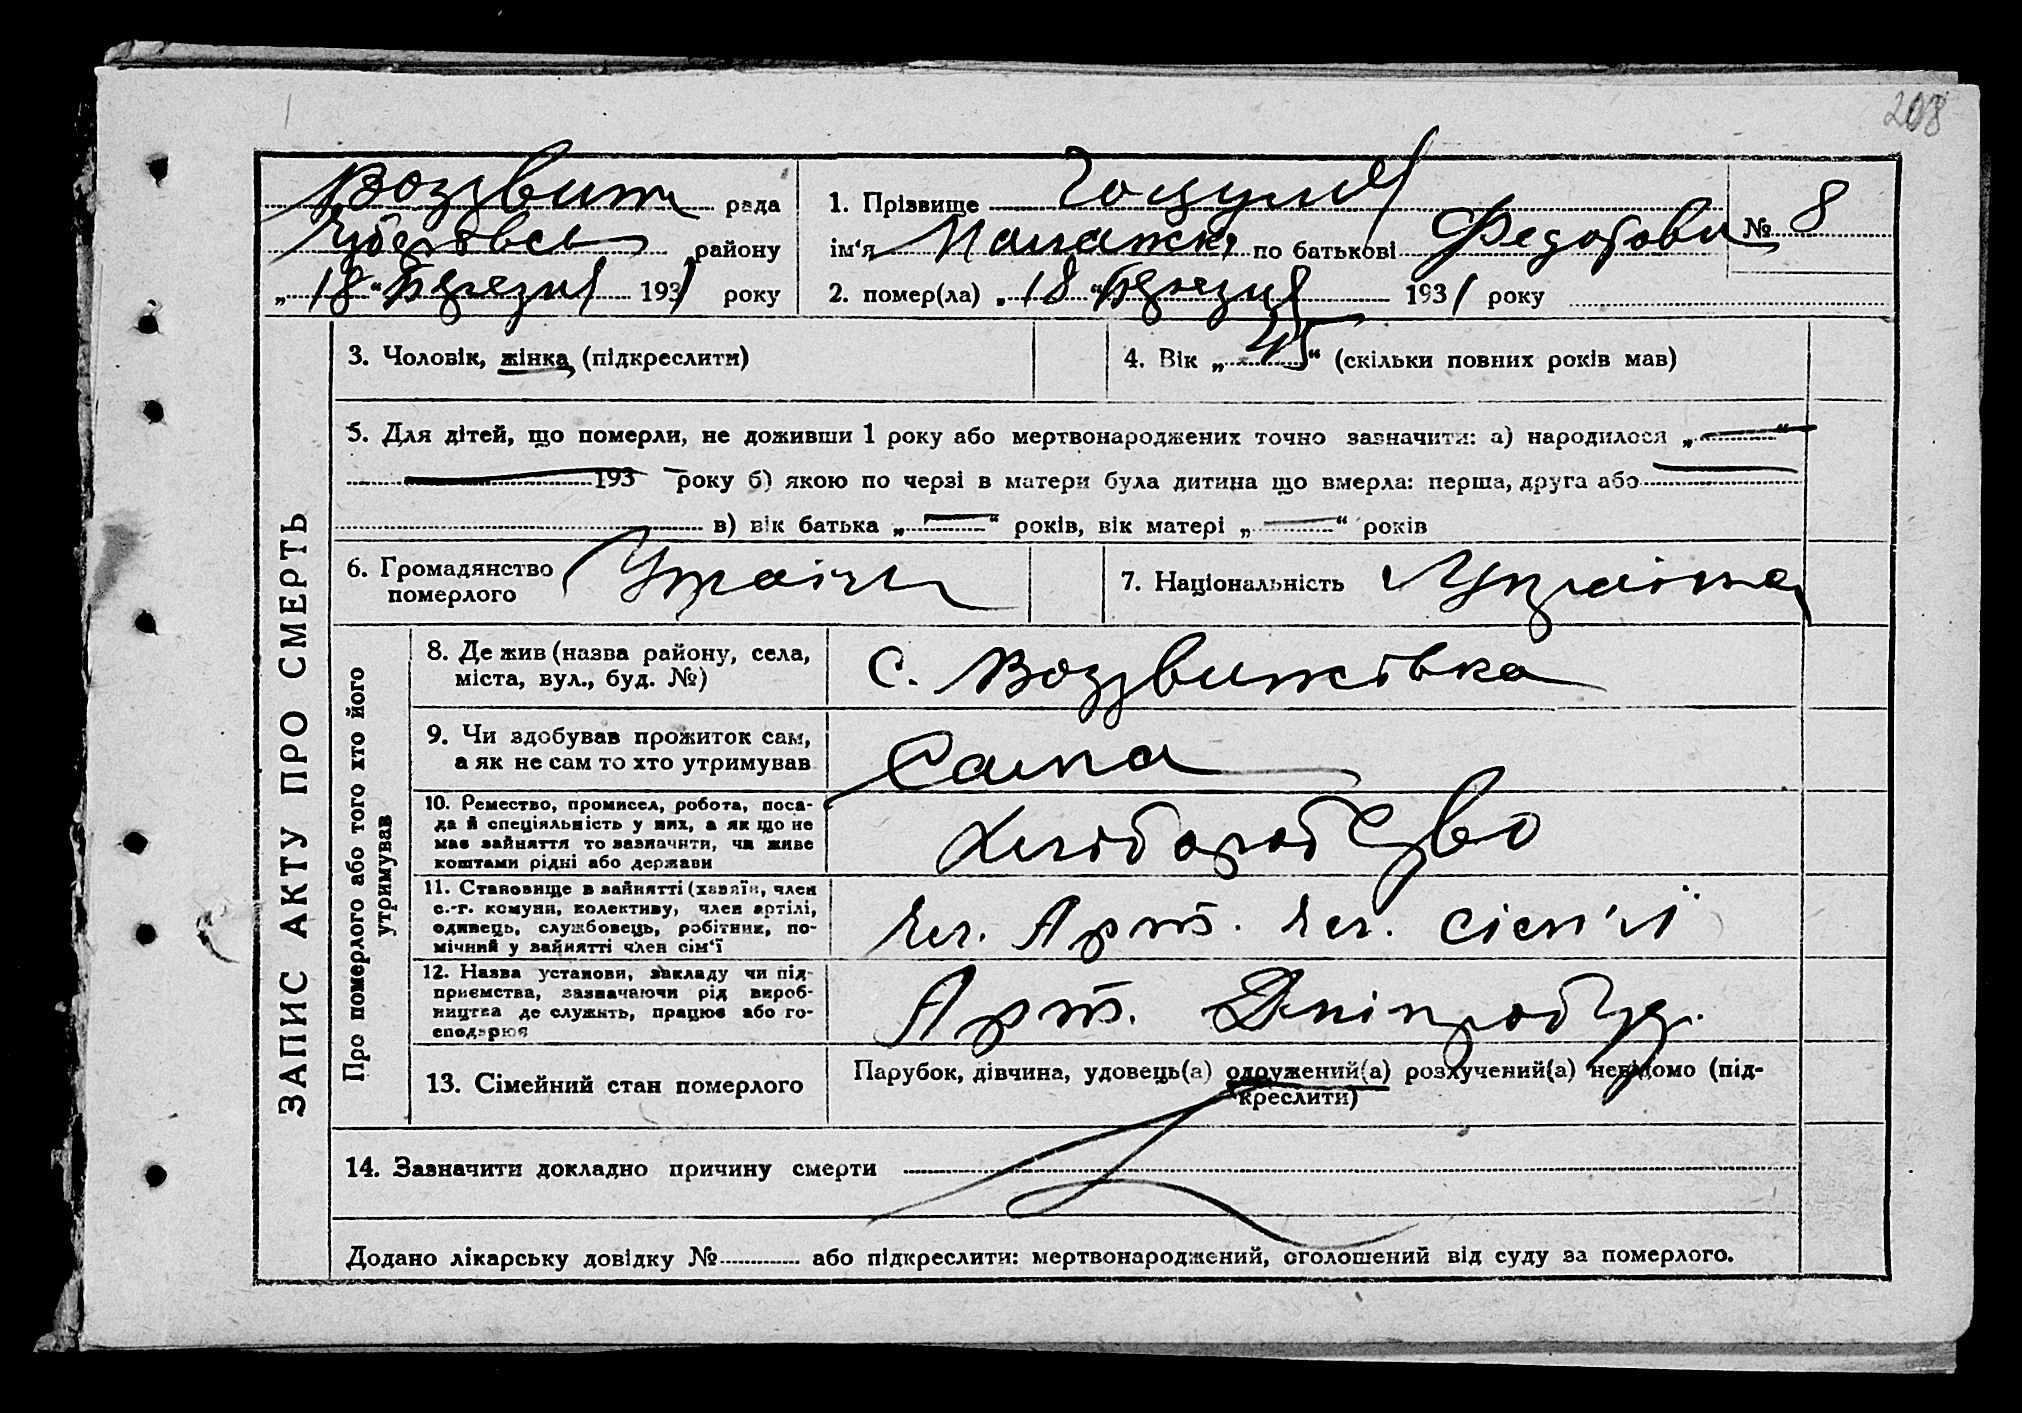 208
Воздвиж рада
району
„18“ Березня 1931 року
1. Прізвище Гоцуля № 8
ім‘я Палажка по батькові Федорови
2. помер(ла) „18“ Березня 1931 року
ЗАПИС АКТУ ПРО СМЕРТЬ
3. Чоловік, жінка (підкреслити)
4. Вік „45“ (скільки повних років мав)
5. Для дітей, що померли, не доживши 1 року або мертвонароджених точно зазначити: а) народилося „—“
— 193 — року б) якою по черзі в матери була дитина що вмерла: перша, друга або —
в) вік батька „—“ років, вік матері „—“ років
6. Громадянство
померлого
Україн
7. Національність Українка
Про померлого або того хто його
утримував
8. Де жив (назва району, села,
міста, вул., буд. №)
с. Воздвижівка
9. Чи здобував прожиток сам,
а як не сам то хто утримував
Сама
10. Ремество, промисел, робота, поса-
да й спеціяльність у них, а як що не
мав зайняття то зазначити, чи живе
коштами рідні або держави
Хліборобство
11. Становище в зайнятті (хазяїн, член
с.-г. комуни, колективу, член артілі,
одинець, службовець, робітник, по-
мічний у зайнятті член сім‘ї
чл. Арт. чл. сієм'ї
12. Назва установи, закладу чи під-
приємства, зазначаючи рід вироб-
ництва де служить, працює або го-
сподарює
Арт. Дніпробуд.
13. Сімейний стан померлого
Парубок, дівчина, удовець(а) одружений(а) розлучений(а) невідомо (під-
креслити)
14. Зазначити докладно причину смерти
Додано лікарську довідку № або підкреслити: мертвонароджений, оголошений від суду за померлого.